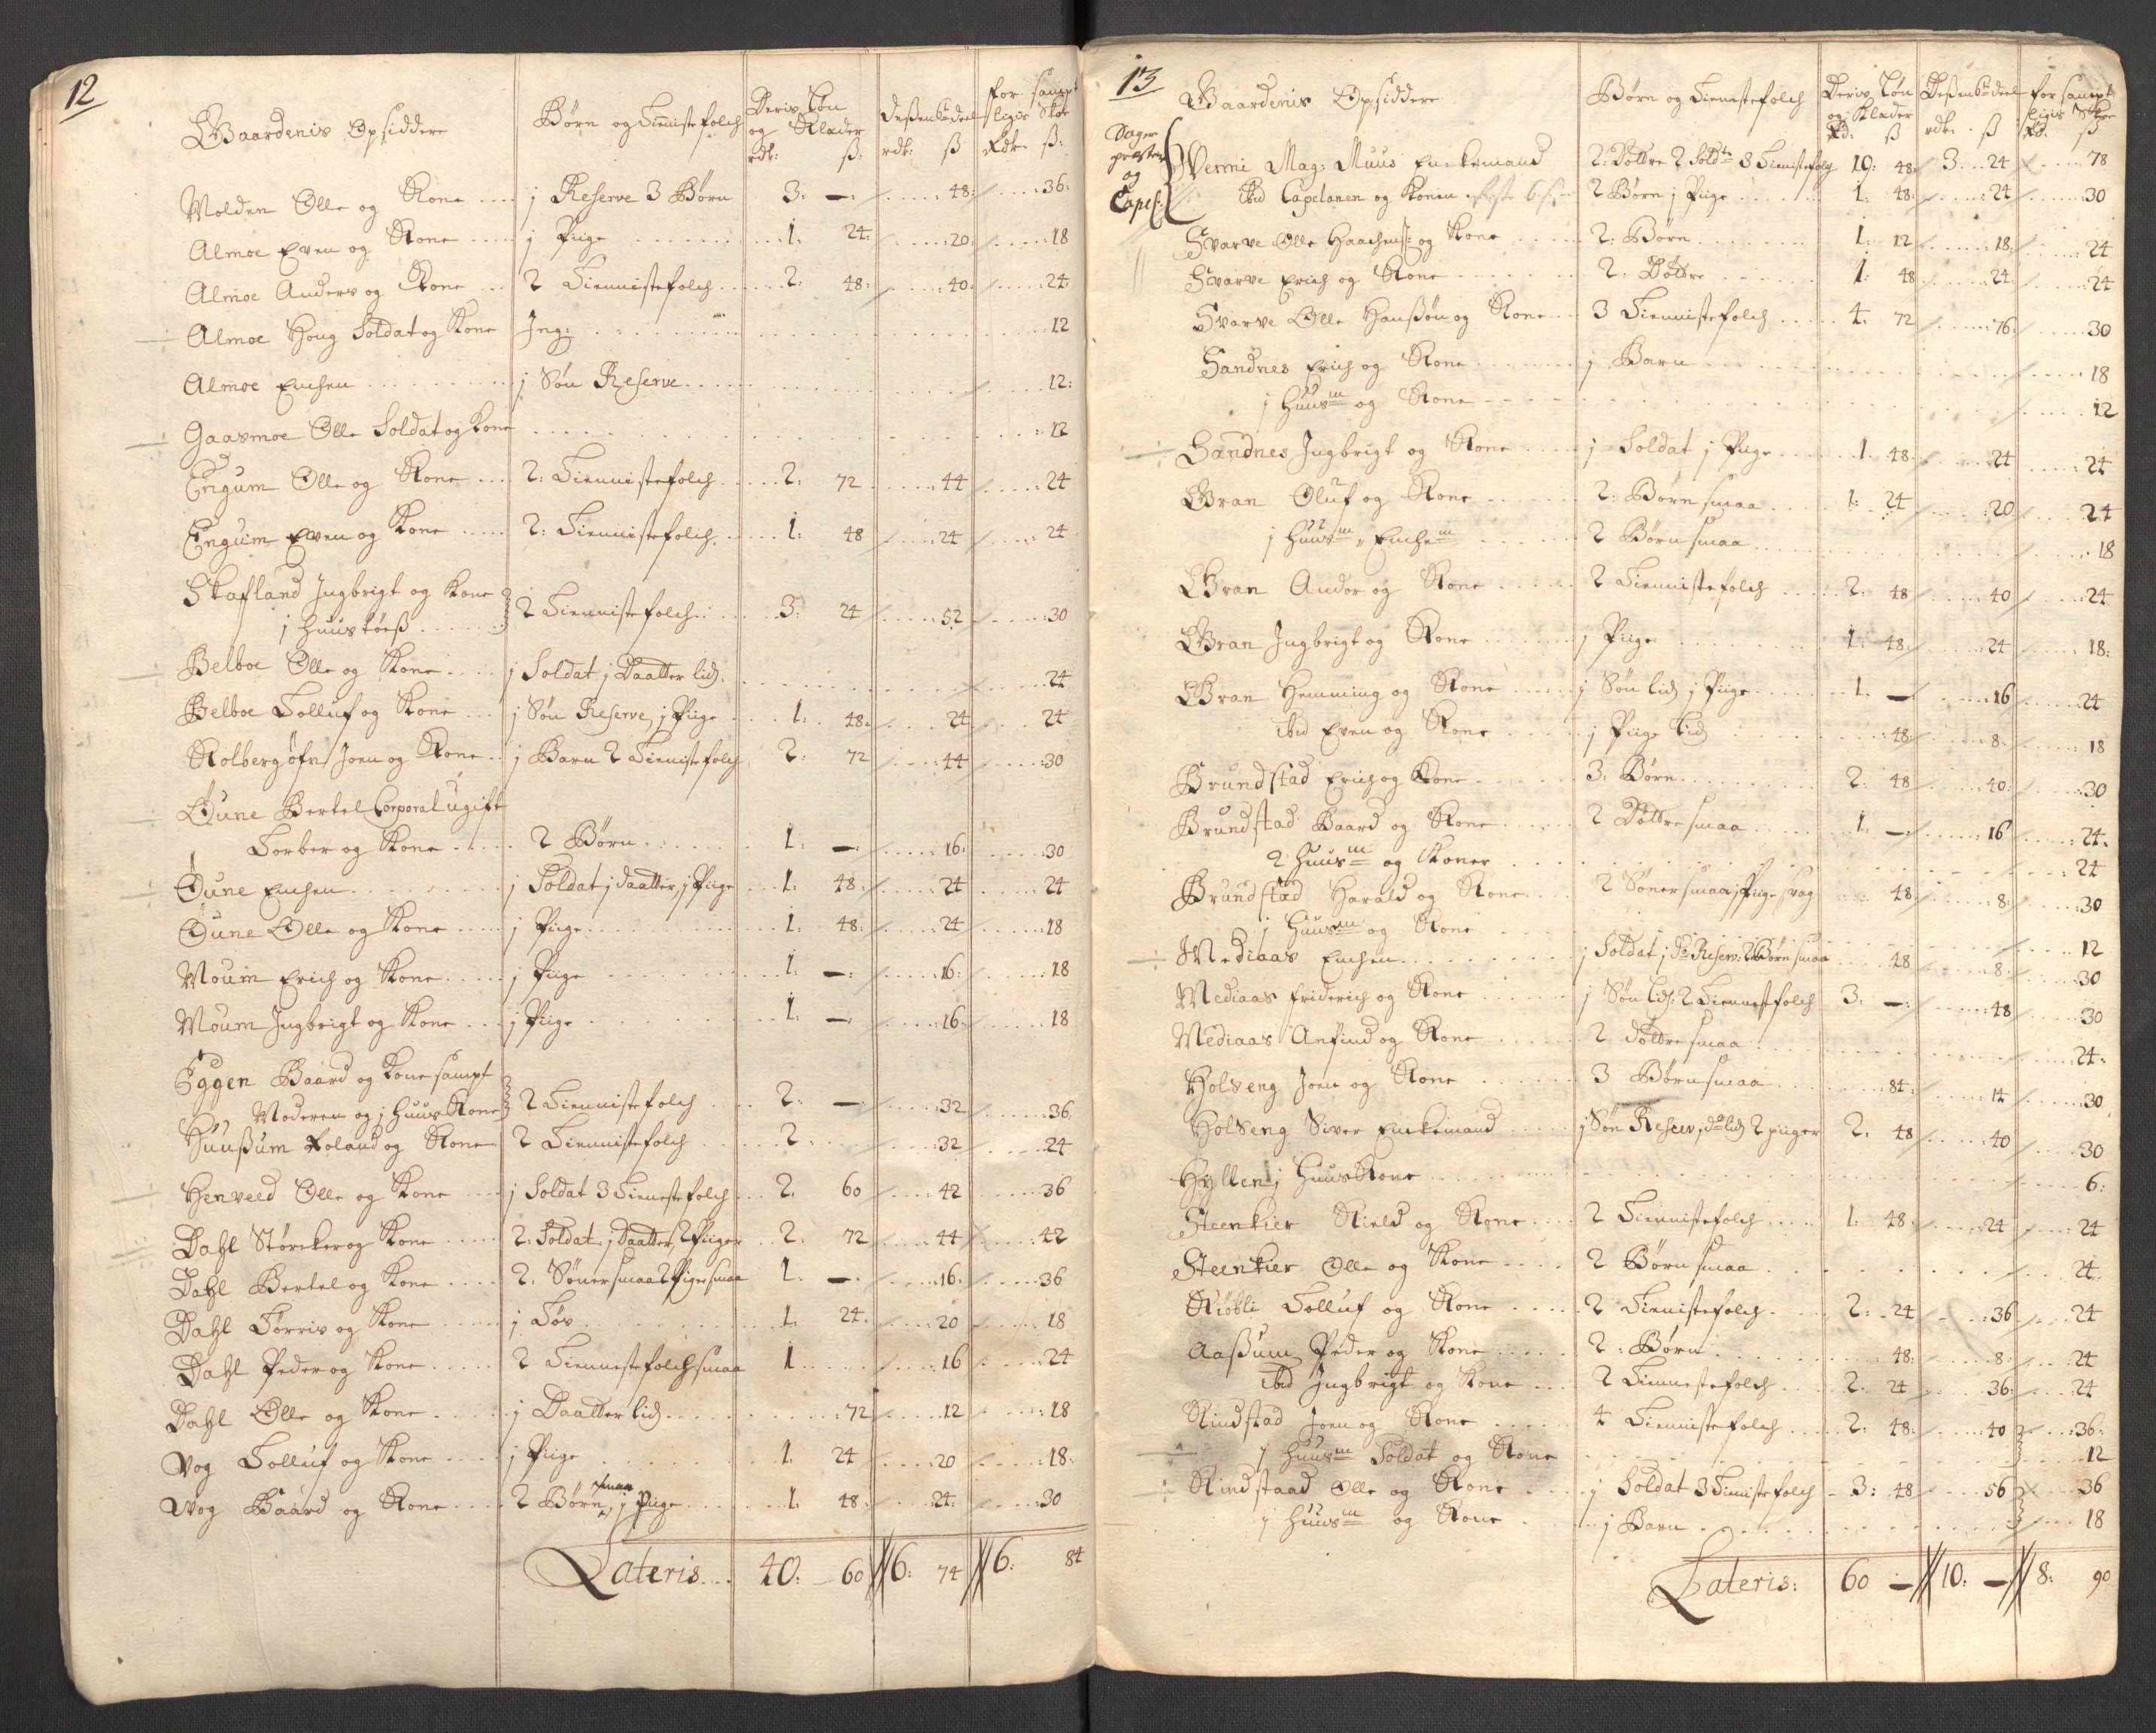 12
Gaardenis Opsiddere | Børn og Tienistefolch | Deris Løn og Klæder rdr: ß: | Deßen 6te deel rdr: ß | for sampt ligis Skoe Rdr. ß:
Molden Olle og Kone .... | j Reserve 3 Børn | 3: —: | 48: | 36:
Almoe Even og Kone .... | j Piige | 1: 24: | 20: | 18
Almoe Anders og Kone ... | 2 Tiennistefolch | 2: 48: | 40: | 24
Almoe Houg Soldat og Kone | Ing: | 12
Almoe Enchen | j Søn Reserve | 12:
Gaasmoe Olle Soldat og Kone | 12
Engum Olle og Kone .... | 2: Tiennistefolch | 2: 72 | 44 | 24
Enguim Even og Kone .... | 2: Tiennistefolch | 1: 48 | 24 | 24
Skafland Ingbrigt og Kone
j huustøeß | 2 Tiennistefolch | 3: 24 | 52 | 30
Belboe Olle og Kone .... | j Soldat j Daatter lid: | 24
Belboe Tolluf og Kone | j Søn Reserve, j Piige | 1: 48: | 24 | 24
Kolbergøfn Joen og Kone .. | j Barn 2 Tienistefolch | 2: 72 | 44 | 30
Øune Bertel Corporal ugift
Torber og Kone ..... | 2 Børn | 1: —: | 16: | 30
Øune Enchen | j Soldat j daatter, j Piige | 1: 48: | 24 | 24
Øune Olle og Kone | j Piige | 1: 48: | 24 | 18
Moum Erich og Kone | j Piige | 1: —: | 16: | 18
Moum Ingbrigt og Kone | j Piige | 1: —: | 16: | 18
Eggen Baard og Kone sampt
Moderen og j huus Kone | 2 Tiennistefolch | 2: —: | 32 | 36
Huußum Roland og Kone | 2 Tiennistefolch | 2: | 32 | 24
Henveld Olle og Kone | j Soldat 3 Tienestefolch | 2. 60 | 42 | 36
Dahl Størcker og Kone | 2: Soldat j Daatter, 2 Piiger | 2. 72 | 44 | 42
Dahl Bertel og Kone | 2. Søner smaa 2 Piger smaa | 1. —. | 16: | 36
Dahl Torris og Kone | j Tøs | 1: 24: | 20 | 18
Dahl Peder og Kone | 2 Tiennestefolch smaa | 1 | 16 | 24
Dahl Olle og Kone | j Daatter lid | 72 | 12 | 18
Vog Tolluf og Kone | j Piige | 1. 24 | 20 | 18:
Vog Baard og Kone | 2 Børn smaa, j Piige | 1: 48: | 24: | 30
Lateris | 40: 60 | 6: 74 | 6: 84
13
Gaardenis Opsiddere | Børn og Tiennistefolch | Deris Løn og Klæder Rd: ß | Deßen 6 deel rdr: ß | for sampt ligis Skoe Rd. ß
Sogne præsten og Capel:
Vermi Mag: Muus Enckemand | 2: Døttre 2 Soldtr 3 Tienistefolch | 10: 48: | 3 24 | 78
Ibid Capelanen og Konen | 2 Børn j Piige | 1: 48: | 24 | 30
Svarve Olle Haachenß: og Kone | 2: Børn | 1: 12 | 18: | 24
Svarve Erich og Kone | 2: Døttre | 1: 48 | 24: | 24
Svarve Olle Hanßøn og Kone | 3 Tiennistefolch | 4: 72 | 76: | 30
Sandnes Erich og Kone | j Barn | 18
j huusm og Kone | 12
Sandnes Ingbrigt og Kone | j Soldat j Piige | 1 48: | 24 | 24
Gran Oluf og Kone | 2: Børn smaa | 1: 24 | 20 | 24
j huusm, Enchem | 2 Børn smaa | 18
Gran Andor og Kone | 2 Tiennistefolch | 2: 48 | 40 | 24
Gran Ingbrigt og Kone | j Piige | 1: 48: | 24 | 18:
Gran Hemming og Kone | j Søn lid j Piige | 1. — | 16 | 24
Ibid Even og Kone | j Piige lid | 48 | 8: | 18
Brundstad Erich og Kone | 3: Børn | 2: 48 | 40: | 30
Brundstad Baard og Kone | 2 Døttre smaa | 1. —: | 16 | 24.
2 huusm og Koner | 24
Brundstad Harald og Kone | 2 Søner smaa j Piige svag | 48 | 8: | 30
j huusm og Kone | 12
Mediaas Enchen | j Soldat j do Reserv: 2 Børn smaa | 48 | 8: | 30
Mediaas Friderich og Kone | j Søn lid: 2 Tiennestfolch | 3. —: | 48 | 30
Mediaas Anfind og Kone | 2 døttre smaa | 24:
Holseng Joen og Kone | 3 Børn smaa | 84: | 14 | 30
Holseng Siver Enckemand | j Søn Reserv, j do lid 2 piiger | 2. 48 | 40 | 30
Hyllen j huus Kone | 6:
Steenkier Kield og Kone | 2 Tiennistefolch | 1: 48: | 24 | 24
Steenkier Olle og Kone | 2 Børn smaa | 24:
Kiøbli Tolluf og Kone | 2 Tienistefolch | 2: 24 | 36 | 24
Aaßum Peder og Kone | 2: Børn | 48: | 8: | 24
Ibid Ingbrigt og Kone | 2 Tiennestefolch | 2: 24 | 36: | 24
Rindstad Joen og Kone | 4 Tiennistefolch | 2: 48: | 40 | 36:
j huusm Soldat og Kone | 12
Rindstaad Olle og Kone | j Soldat 3 Tienistefolch | 3: 48 | 56 | 36
j huusm og Kone | j Barn | 18
Lateris: | 60 — | 10: — | 8: 90